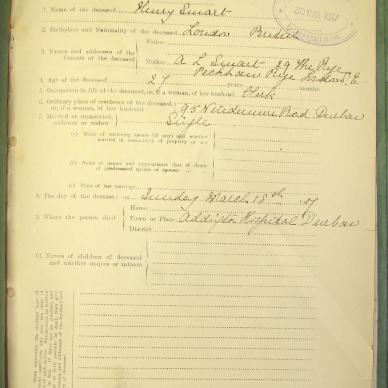 1. Name of the deceased Henry Smart
30 MAR 1917
2. Birthplace and Nationality of the deceased London British
3. Names and addresses of the Parents of the deceased
Father
Mother A L Smart 29 The Rye
Peckham Rye London S.E.
4. Age of the deceased 27 years months
5. Occupation in life of the deceased, or, if a woman, of her husband Clerk
6. Ordinary place of residence of the deceased, or, if a woman, of her husband 95 Windermere Road Durban
7. Married or unmarried, widower or widow Single
(a) Name of surviving spouse (if any) and whether married in community of property or not
(b) Name or names and approximate date of death of predeceased spouse or spouses
(c) Place of last marriage
8. The day of the decease: on Sunday March 18th 17
9. Where the person died
House
Town or Place Addington Hospital Durban
District
10. Names of children of deceased and whether majors or minors